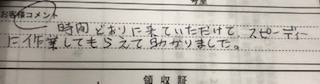 お客様コメント
時間どおりに来ていただけて、スピーディー
に作業してもらえて助かりました。
領収証